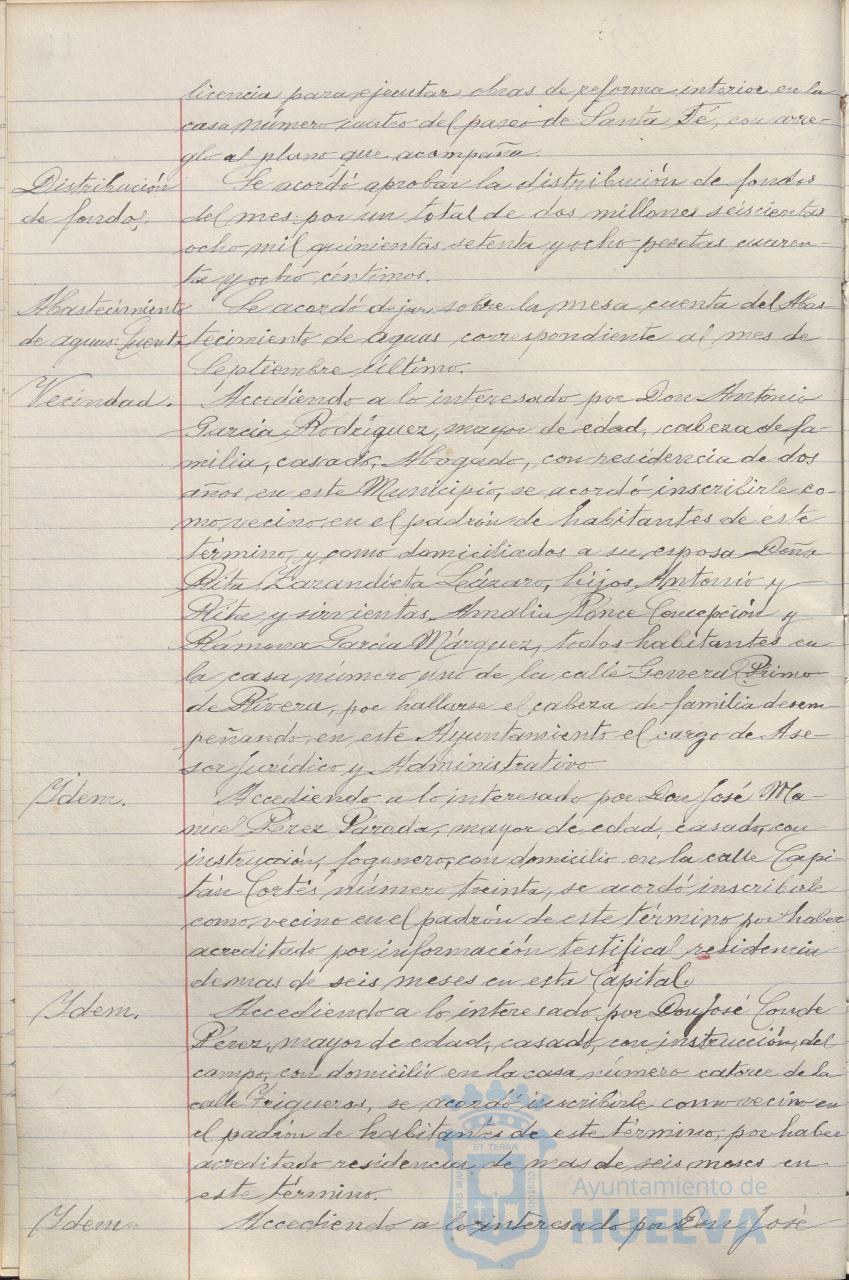 licencia para ejecutar obras de reforma interior en la
casa número cuatro del paseo de Santa Fé, con arre-
glo al plano que acompaña.
Distribución
de fondos.
Se acordó aprobar la distribución de fondos
del mes por un total de dos millones seiscientas
ocho mil quinientas setenta y ocho pesetas cuaren-
ta y ocho céntimos.
Abastecimiento
de aguas. Cuenta
Se acordó dejar sobre la mesa cuenta del Abas-
tecimiento de aguas correspondiente al mes de
Septiembre último.
Vecindad.
Accediendo a lo interesado por Don Antonio
García Rodríguez, mayor de edad, cabeza de fa-
milia, casado, Abogado, con residencia de dos
años en este Municipio, se acordó inscribirle co-
mo vecino en el padrón de habitantes de este
término, y como domiciliados a su esposa Doña
Rita Zarandieta Lázaro, hijos Antonio y
Rita y sirvientas Amalia Ponce Concepción y
Ramona García Márquez, todos habitantes en
la casa número uno de la calle General Primo
de Rivera, por hallarse el cabeza de familia desem
peñando en este Ayuntamiento el cargo de Ase-
sor Jurídico y Administrativo
Idem.
Accediendo a lo interesado por Don José Ma-
nuel Pérez Parada, mayor de edad, casado, con
instrucción, fogonero, con domicilio en la calle Capi-
tán Cortés número treinta, se acordó inscribirle
como vecino en el padrón de este término por haber
acreditado por información testifical residencia
de mas de seis meses en esta Capital.
Idem.
Accediendo a lo interesado por Don José Conde
Pérez, mayor de edad, casado, con instrucción, del
campo, con domicilio en la casa número catorce de la
calle Trigueros, se acordó inscribirle como vecino en
el padrón de habitantes de este término, por haber
acreditado residencia de mas de seis meses en
este término.
Idem.
Accediendo a lo interesado por Don José
Ayuntamiento de
HUELVA